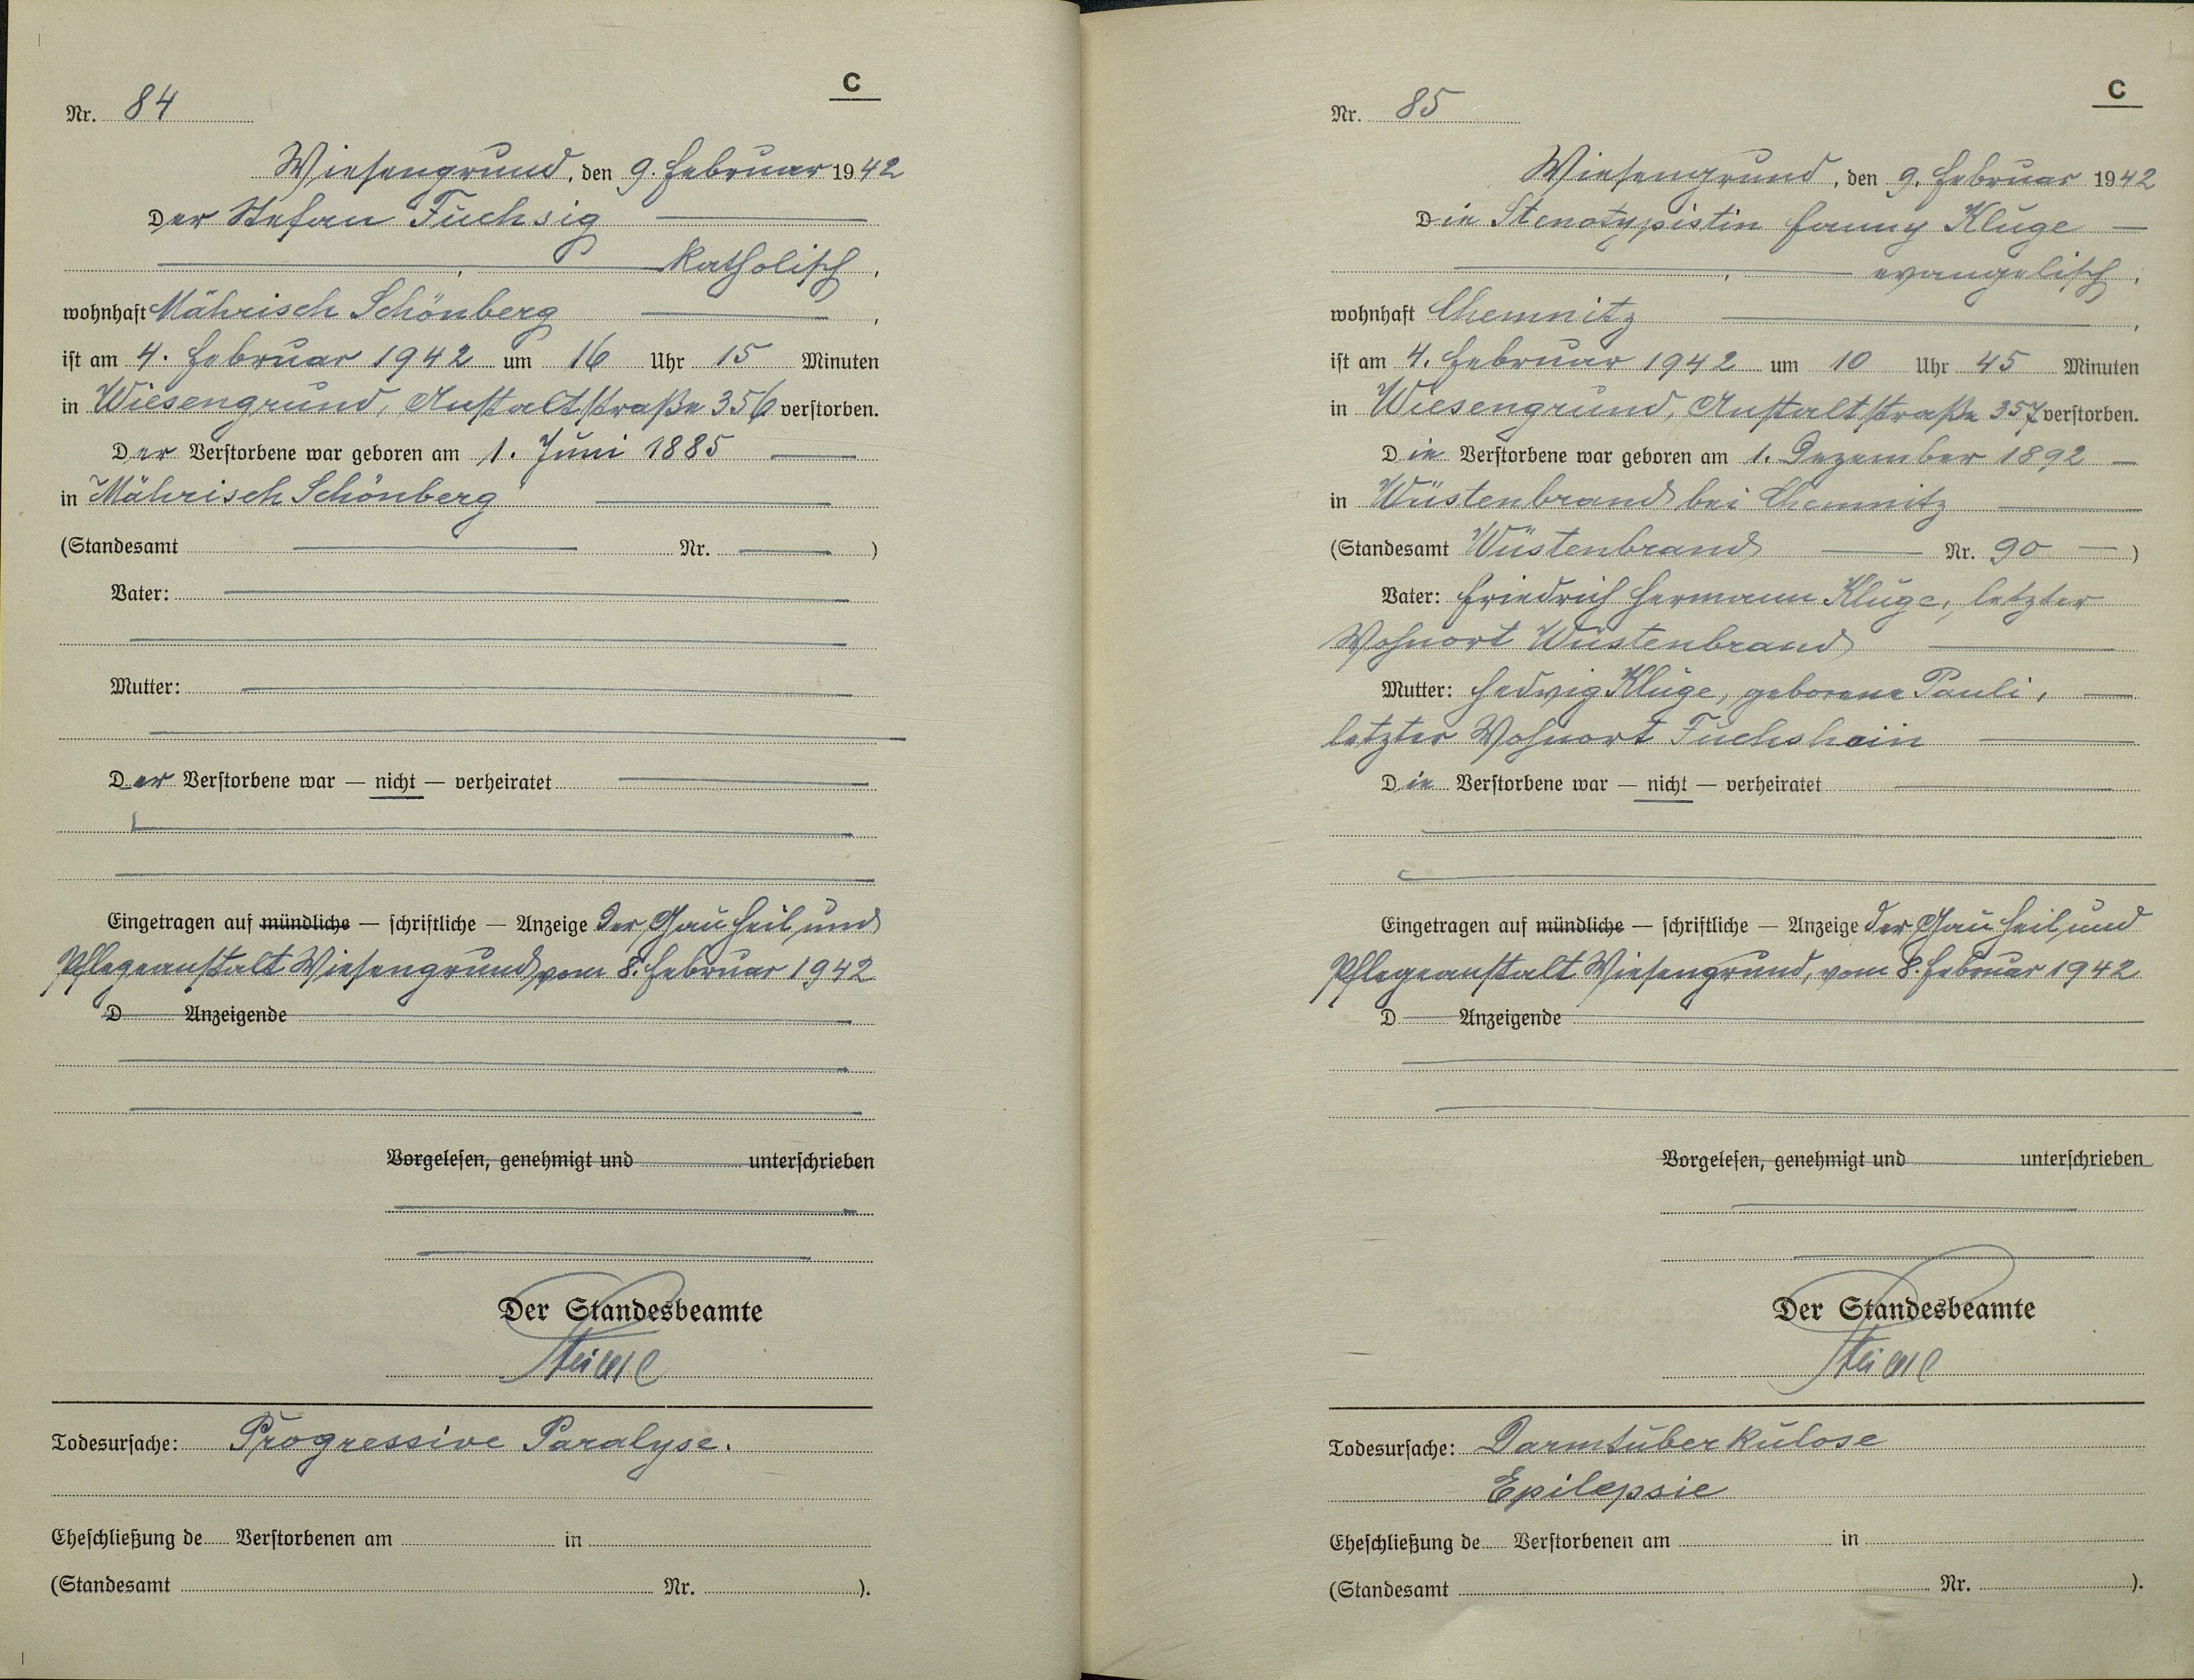 C
Nr. 84
Wiesengrund, den 9. Februar 1942
Der Stefan Fuchsig
katholisch,
wohnhaft Mährisch Schönberg,
ist am 4. Februar 1942 um 16 Uhr 15 Minuten
in Wiesengrund, Anstaltstraße 356 verstorben.
Der Verstorbene war geboren am 1. Juni 1885
in Mährisch Schönberg
(Standesamt Nr. )
Vater:
Mutter:
Der Verstorbene war — nicht — verheiratet
Eingetragen auf mündliche — schriftliche — Anzeige der Gau Heil und
Pflegeanstalt Wiesengrund, vom 8. Februar 1942
D Anzeigende
Vorgelesen, genehmigt und unterschrieben
Der Standesbeamte
Todesursache: Progressive Paralyse.
Eheschließung de Verstorbenen am in
(Standesamt Nr. ).
C
Nr. 85
Wiesengrund, den 9. Februar 1942
Die Stenotypistin Fanny Kluge
evangelisch,
wohnhaft Chemnitz,
ist am 4. Februar 1942 um 10 Uhr 45 Minuten
in Wiesengrund, Anstaltstraße 357 verstorben.
Die Verstorbene war geboren am 1. Dezember 1892
in Wüstenbrand bei Chemnitz
(Standesamt Wüstenbrand Nr. 90)
Vater: Friedrich Hermann Kluge, letzter
Wohnort Wüstenbrand
Mutter: Hedwig Kluge, geborene Pauli,
letzter Wohnort Fuchshain
Die Verstorbene war — nicht — verheiratet
Eingetragen auf mündliche — schriftliche — Anzeige der Gau Heil und
Pflegeanstalt Wiesengrund, vom 8. Februar 1942
D Anzeigende
Vorgelesen, genehmigt und unterschrieben
Der Standesbeamte
Todesursache: Darmtuberkulose
Epilepsie
Eheschließung de Verstorbenen am in
(Standesamt Nr. ).